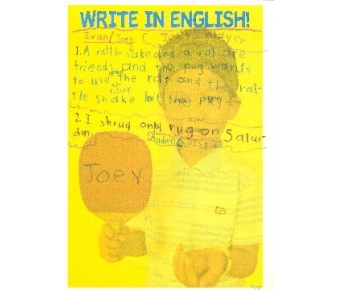 WRITE IN ENGLISH!
Ivan/Joey (
1. A rattle sake and a rat are
friends and the pug wants
to use the rat and the rat-
tle snake bit the pug.
2. I shrug on a rug on Satur-
day
Joey